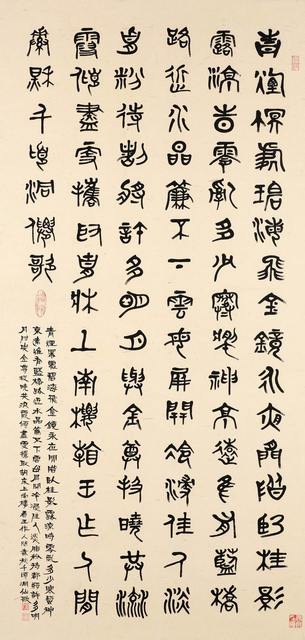 青煙冪處碧海飛金鏡永夜閑階臥桂影
露涼時零亂多少寒螿神京遠惟有藍橋
路近水晶簾不下雲母屏開冷浸佳人淡
脂粉待都將許多明月與金尊投曉共流
霞傾盡更攜取胡床上南樓看玉作人間
素秋千頃洞仙歌
青煙冪處碧海飛金鏡永夜閑階臥桂影露涼時零亂多少寒螿神
京遠惟有藍橋路近水晶簾不下雲母屏開冷浸佳人淡脂粉待都將許多明
月付與金尊投曉共流霞傾盡更攜取胡床上南樓看玉作人間素秋千頃洞仙歌